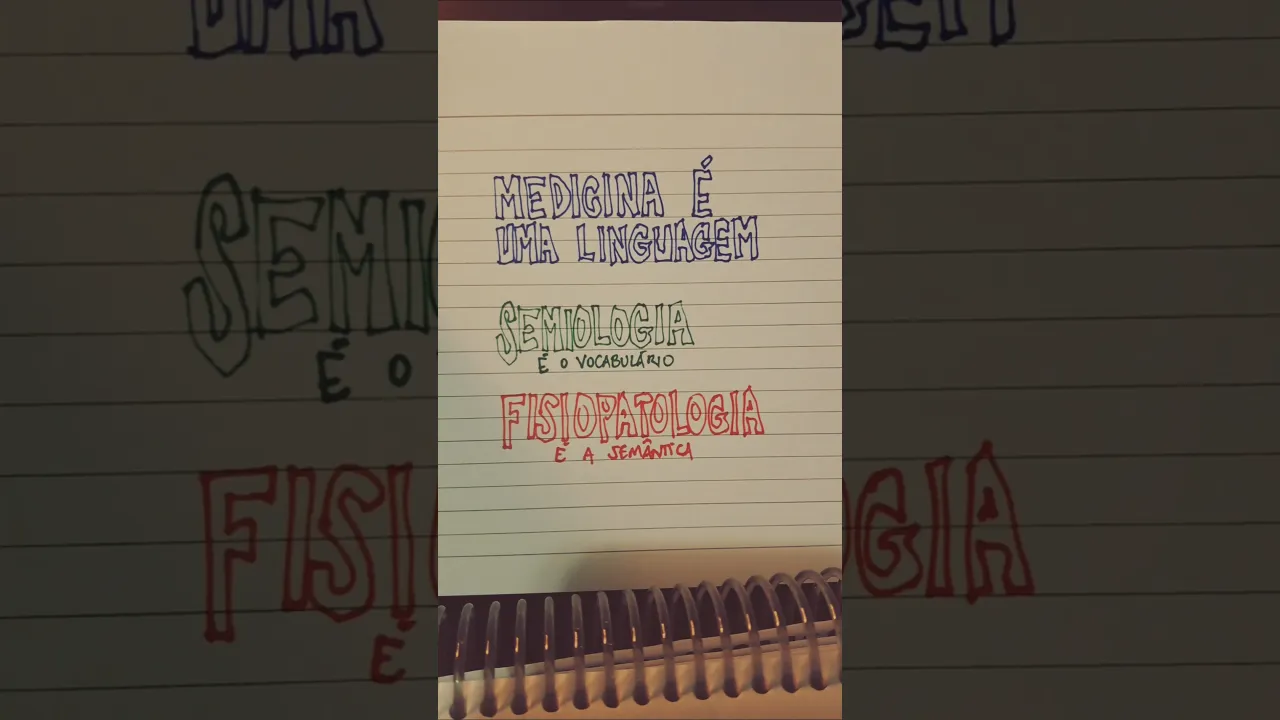 MEDICINA É
UMA LINGUAGEM
SEMIOLOGIA
É O VOCABULÁRIO
FISIOPATOLOGIA
É A SEMÂNTICA